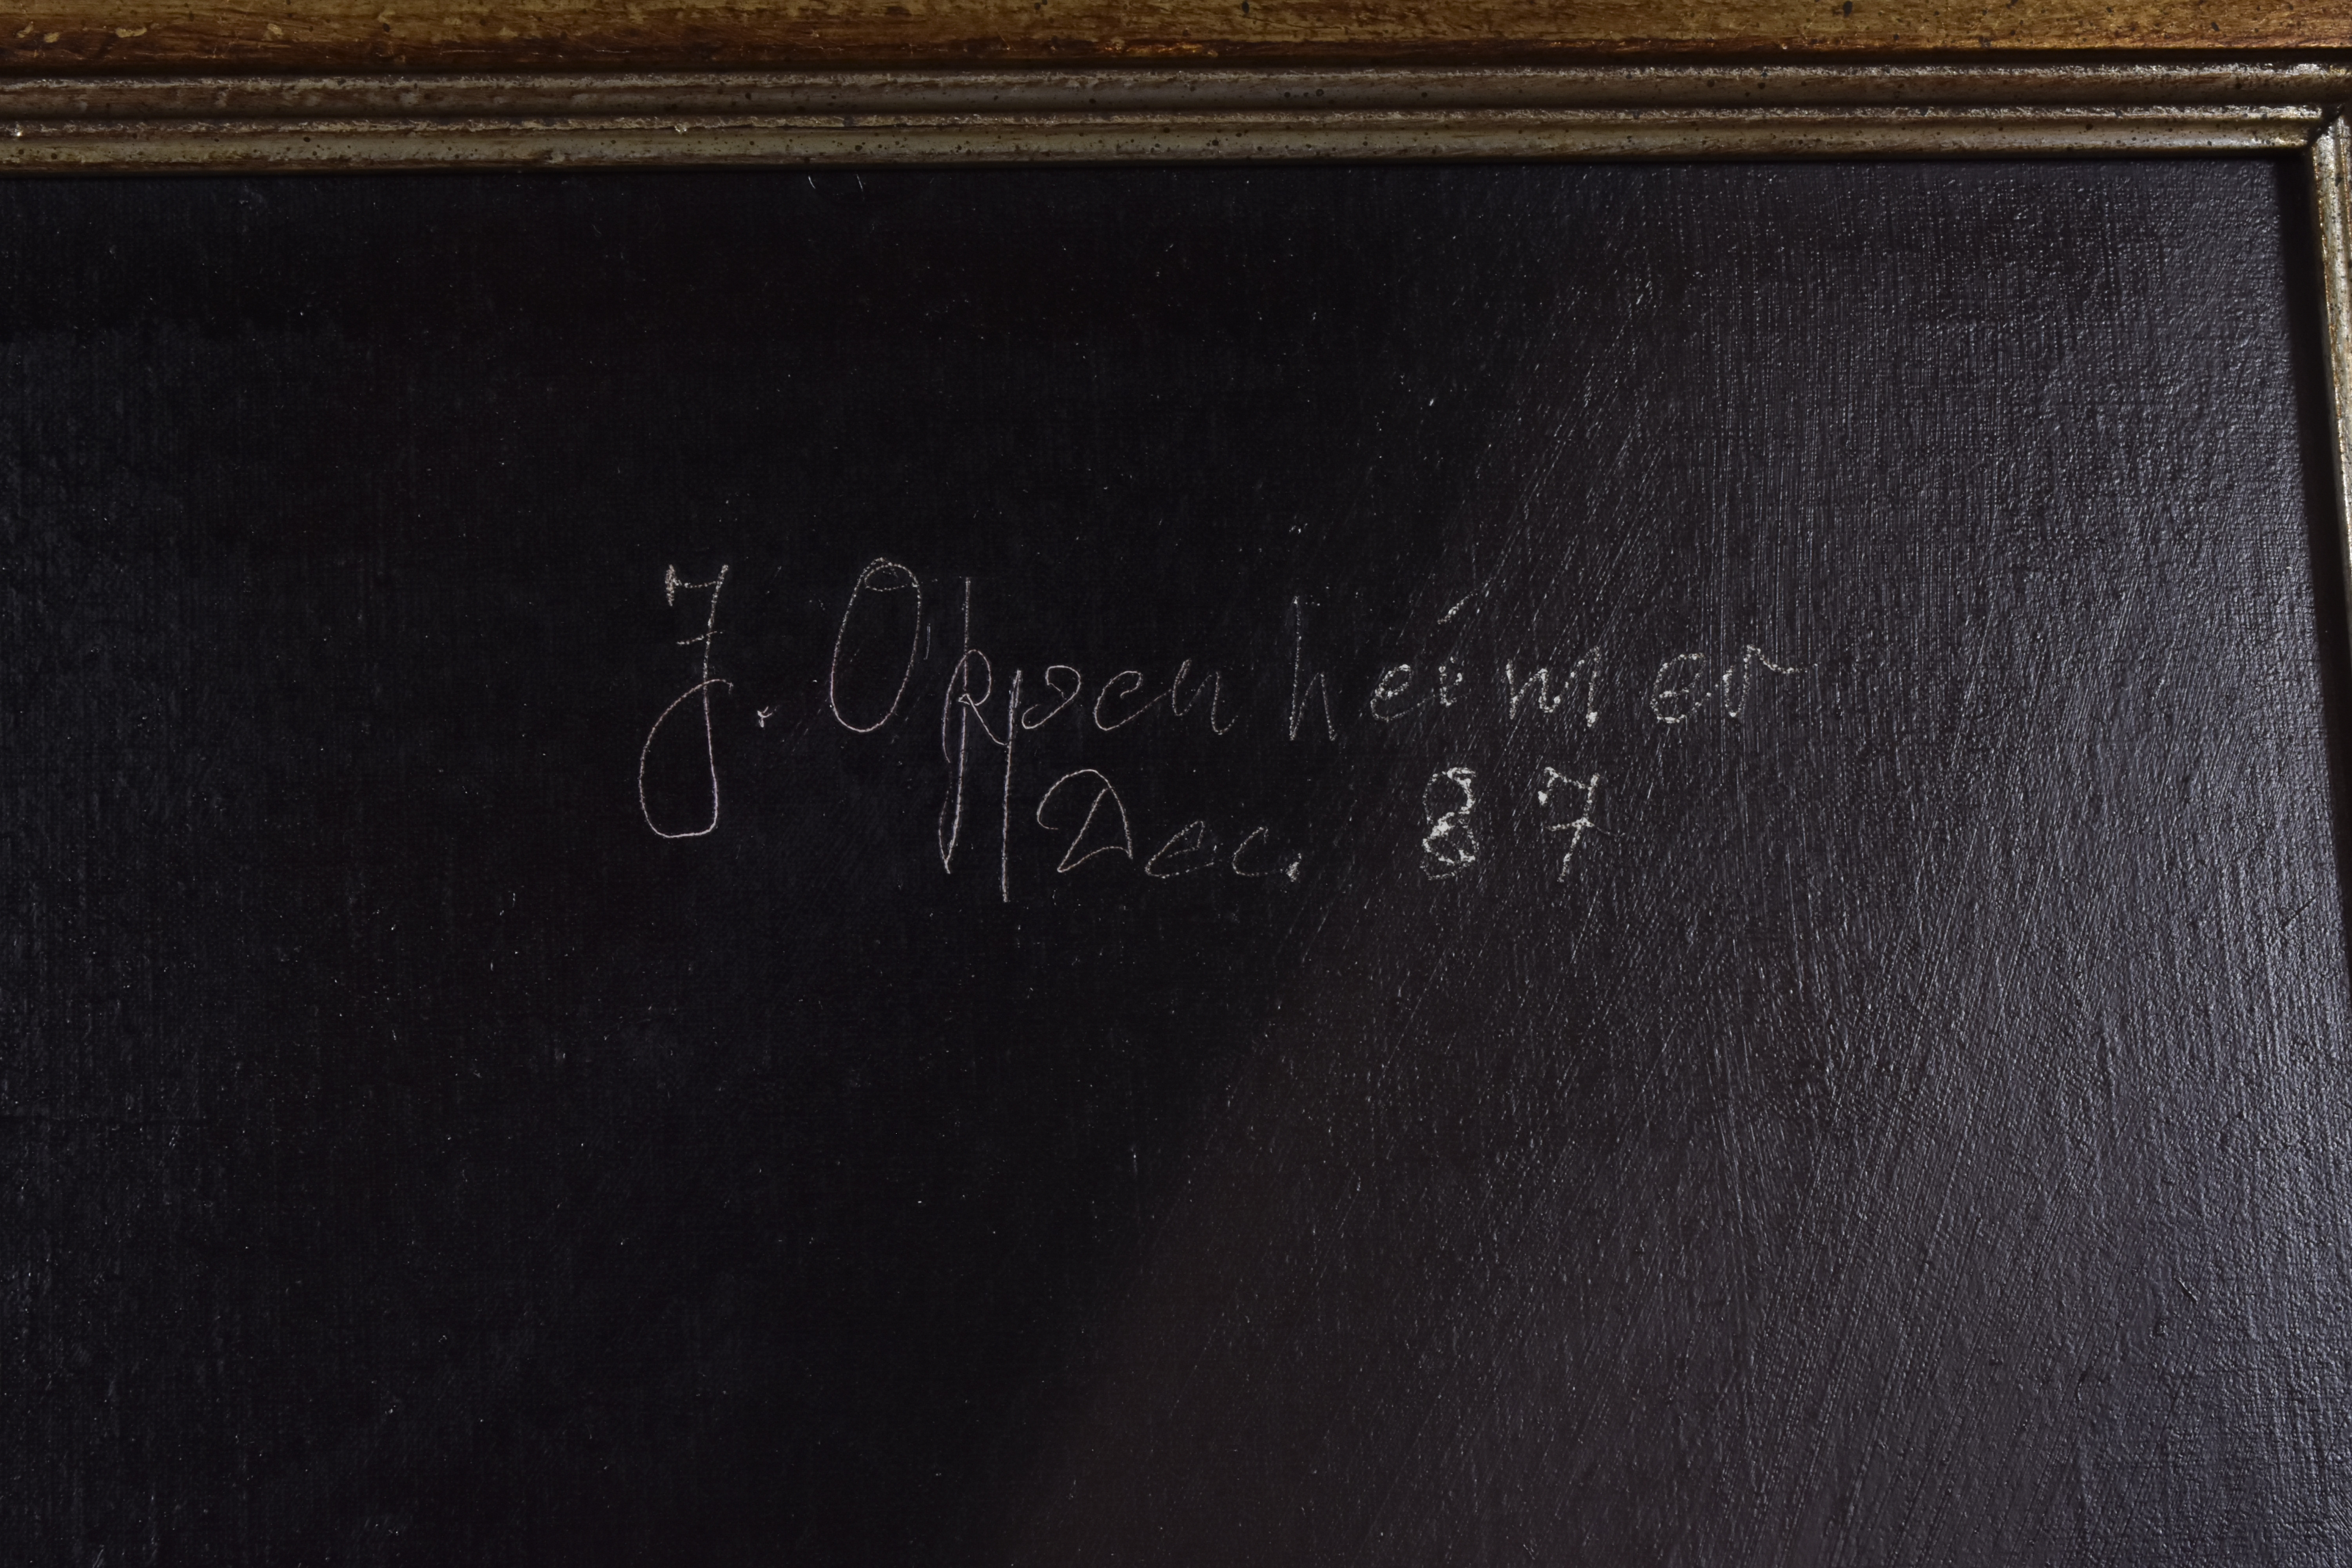 J. Oppenheimer
Dec. 87